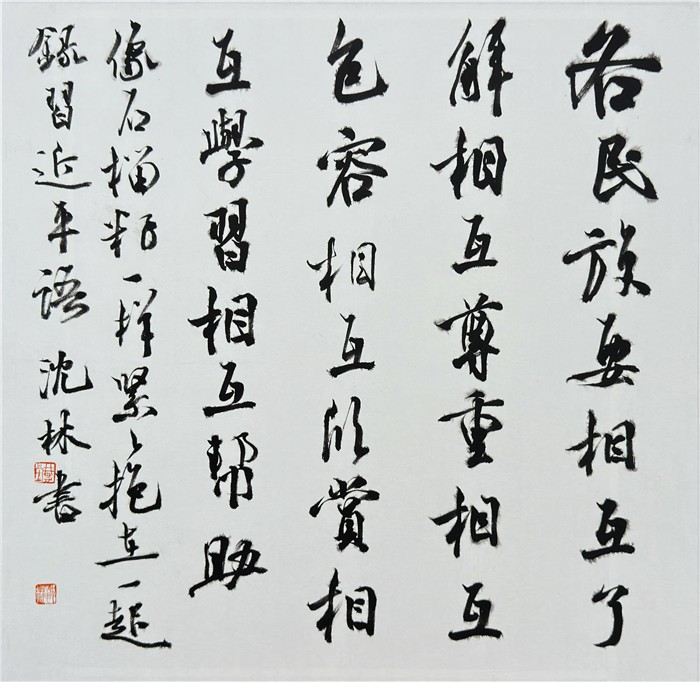 各民族要相互了
解相互尊重相互
包容相互欣赏相
互學習相互幇助
像石榴籽一样紧々抱在一起
録習近平語 沈林書